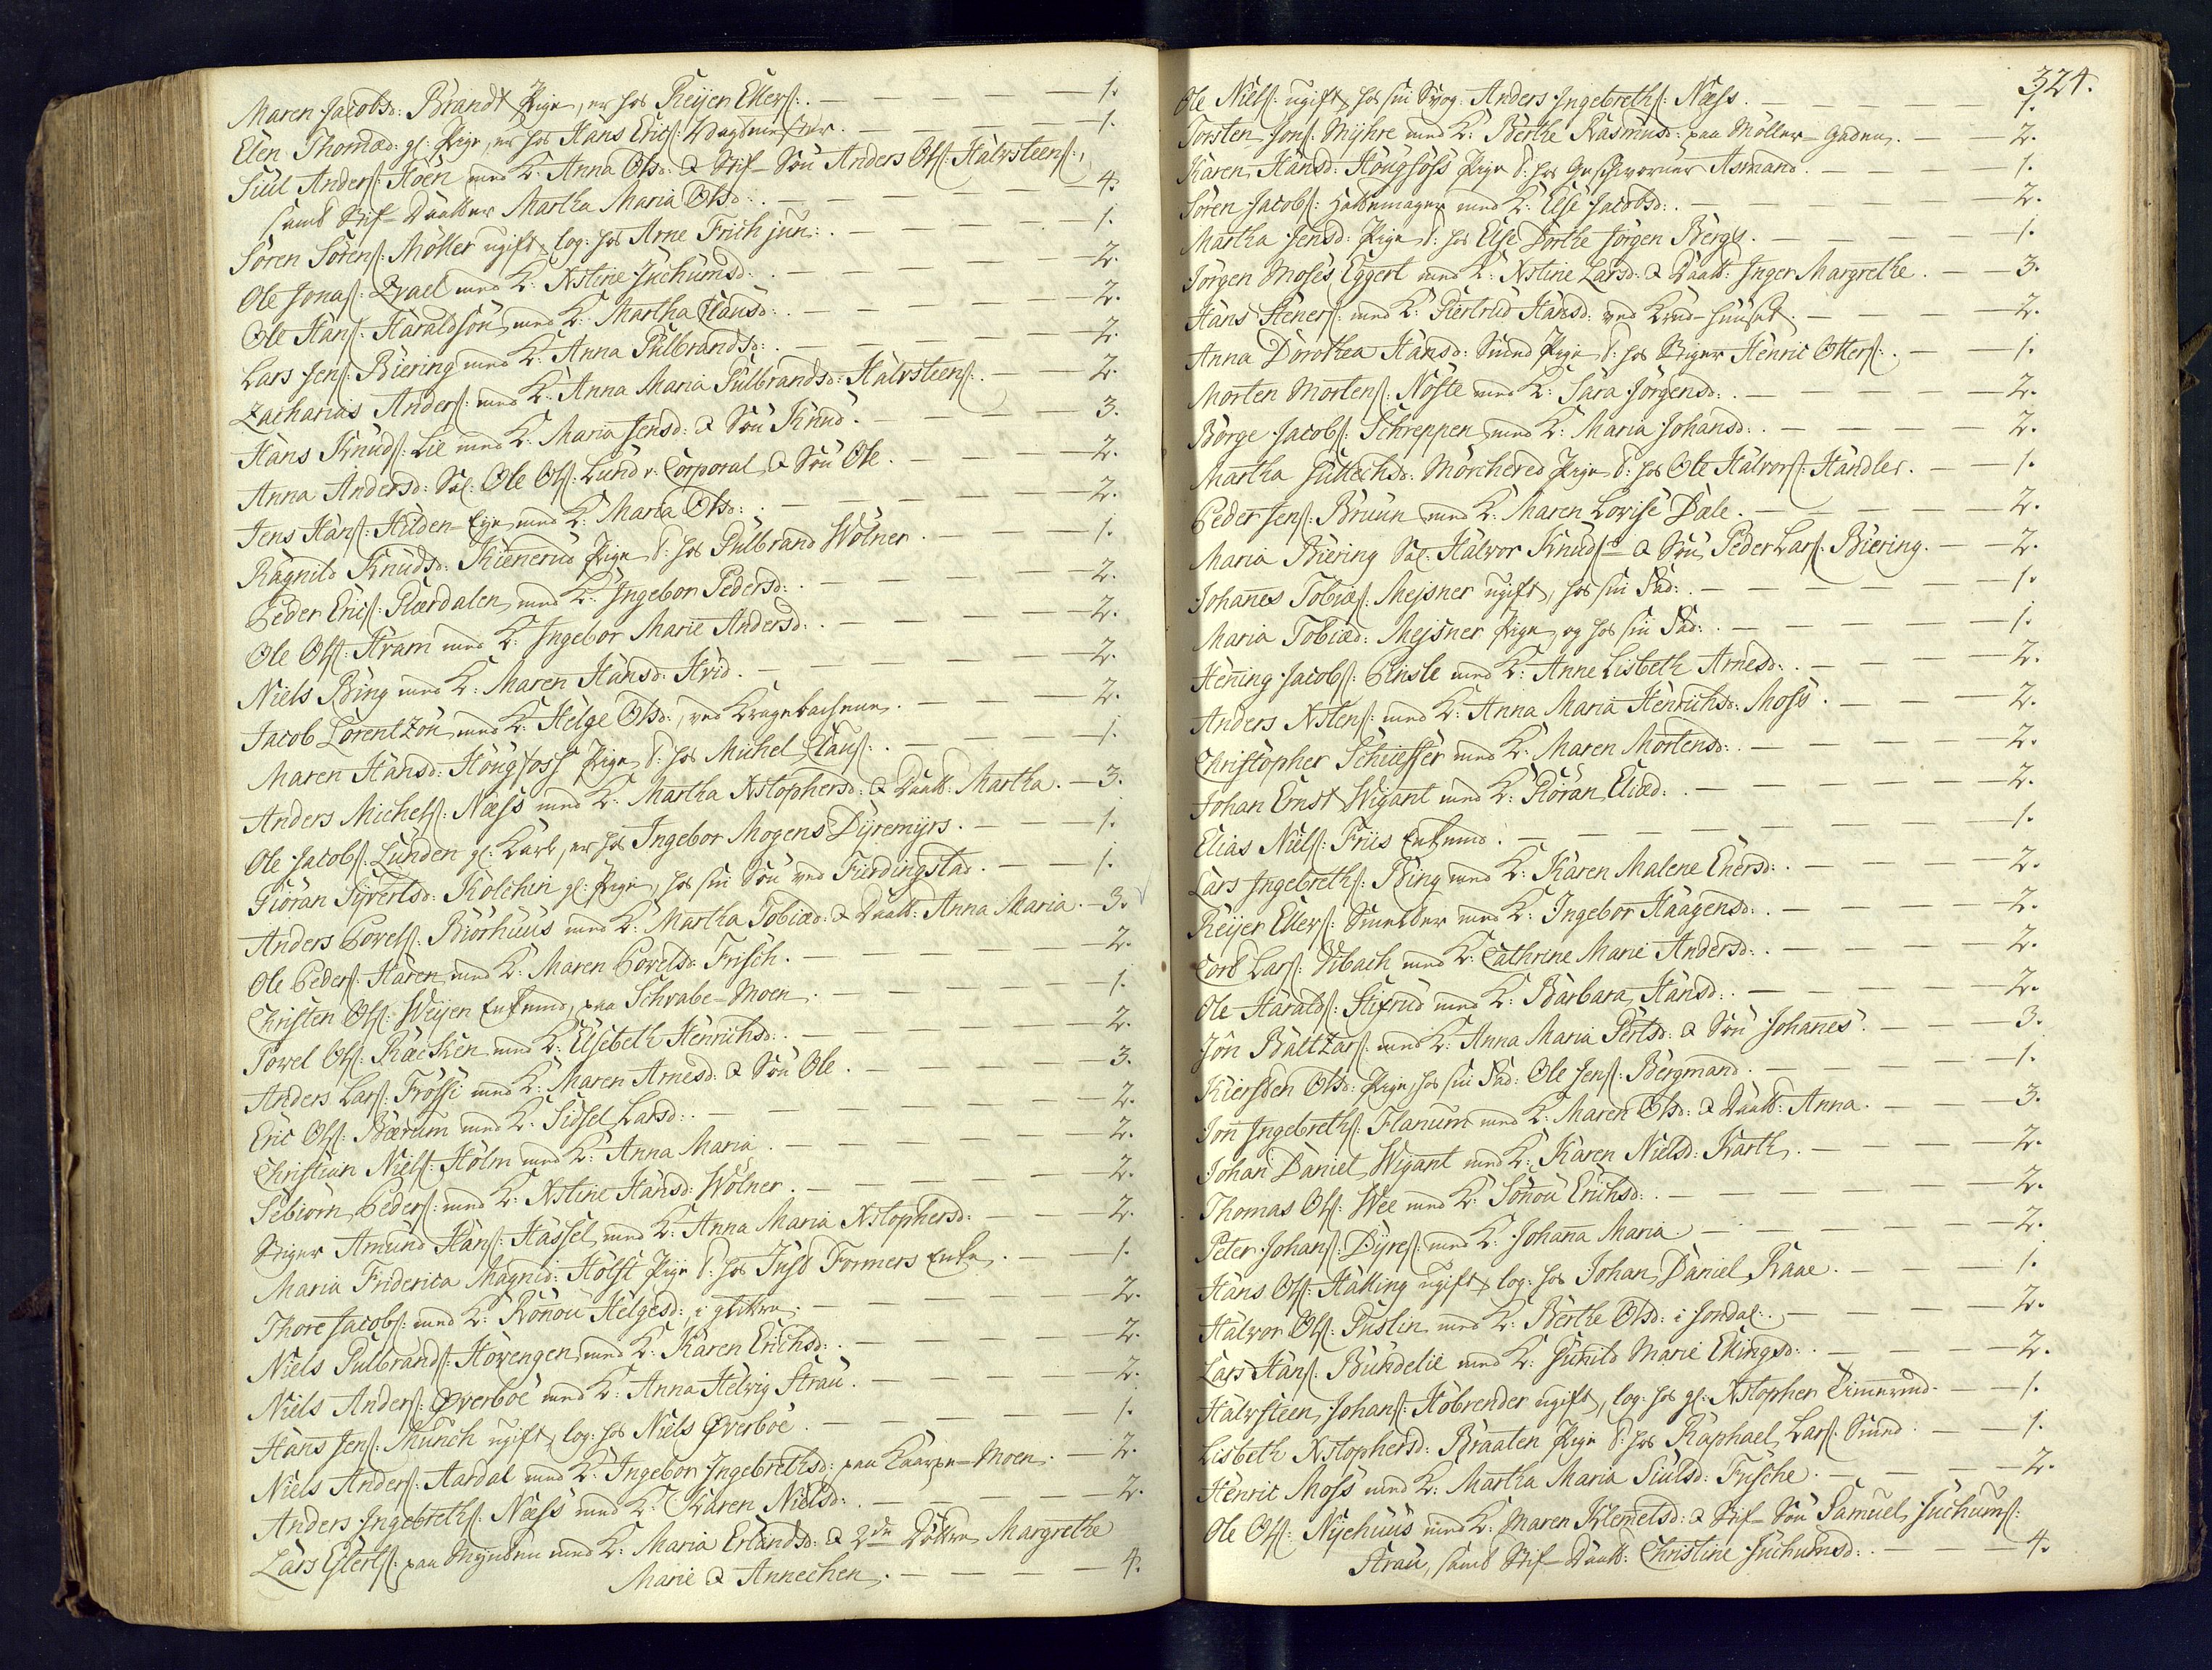 Maren Jacobsd: Brandt Pige, er hos Reijer Ellefs: . — 1.
Elen Thomæd: gl: Pige, er hos Hans Erics: Vagtmester. — 1.
Siul Anders: Hoen med K: Anna Olsd: & Stif-Sön Anders Ols: Halvsteens:,
samt Stif-Daatter Martha Maria Olsd: . — 4.
Sören Sörens: Möller ugift, log: hos Arne Frich jun: . — 1.
Ole Jonas: Zrael med K: Xstine Juchumsd: . — 2.
Ole Hans: Haraldsön med K: Martha Clausd: . — 2.
Lars Jens: Biering med K: Anna Gulbrandsd: . — 2.
Zacharias Anders: med K: Anna Maria Gulbrandsd: Halvsteens: . — 2.
Hans Knuds: Lie med K: Maria Jensd: & Sön Knud. — 3.
Anna Andersd: Sal: Ole Ols: Lund v: Corporal & Sön Ole. — 2.
Jens Hans: Hilden-Eje med K: Maria Olsd: . — 2.
Ragnild Knudsd: Kienerud Pige t: hos Gulbrand Wölner. — 1.
Peder Erics: Flærdalen med K: Ingebor Pedersd: . — 2.
Ole Ols: Hram med K: Ingebor Marie Andersd: . — 2.
Niels Bing med K: Maren Hansd: Hvid. — 2.
Jacob Lorentzön med K: Helge Olsd:, ved Kragebachene. — 2.
Maren Hansd: Hougfoss Pige t: hos Michel Claus: . — 1.
Anders Michels: Næss med K: Martha Xstophersd: & Daatt: Martha. — 3.
Ole Jacobs: Lunden gl: Karl, er hos Ingebor Mogens Dyremyrs. — 1.
Giöran Syvertsd: Kolchin gl: Pige, hos sin Sön ved Furdingstad. — 1.
Anders Povels: Biörhuus med K: Martha Tobiæd: & Daatt: Anna Maria. — 3.
Ole Peders: Haren med K: Maren Povelsd: Frisch. — 2.
Christen Ols: Weyen Enkemd, paa Schrabe-Moen. — 1.
Povel Ols: Ræcken med K: Elsebeth Henrichsd: . — 2.
Anders Lars: Frössi med K: Maren Arnesd: & Sön Ole. — 3.
Eric Ols: Bærum med K: Sidsel Larsd: . — 2.
Christian Niels: Holm med K: Anna Maria. — 2.
Sebiörn Peders: med K: Xstine Hansd: Wölner. — 2.
Stiger Amund Hans: Hassel med K: Anna Maria Xstophersd: — 2.
Maria Friderica Magnid: Holst Pige t: hos Just Formers Enke. — 1.
Thore Jacobs: med K: Rönou Helgesd: i Glitra. — 2.
Niels Gulbrands: Hövengen med K: Karen Erichsd: . — 2.
Niels Anders: Øverboe med K: Anna Helvig Strau. — 2.
Hans Jens: Munch ugift, log: hos Niels Øverboe. — 1.
Niels Anders: Aardal med K: Ingebor Ingebrethsd: paa Kaarpe-Moen. — 2.
Anders Ingebreths: Næss med K: Karen Nielsd: . — 2.
Lars Glerts: paa Mynten med K: Maria Erlandsd: & 2de Döttre Margrethe
Marie & Annechen. — 4.
324.
Ole Niels: ugift, hos sin Svog: Anders Ingebreths: Næss. — 1.
Torsten Jons: Myhre med K: Berthe Rasmusd: paa Möller-Gaden. — 2.
Karen Hansd: Hougfoss Pige t: hos Geschworner Asmand. — 1.
Sören Jacobs: Hattemager med K: Else Jacobsd: . — 2.
Martha Jensd: Pige t: hos Else Dorthe Jörgen Bergs. — 1.
Jörgen Moses Eggert med K: Xstine Larsd: & Daatt: Inger Margrethe. — 3.
Hans Steners: med K: Giertrud Hansd: ved Krud-huuset. — 2.
Anna Dorothea Hansd: Smed Pige t: hos Stiger Henric Otters: . — 1.
Morten Mortens: Nöste med K: Sara Jörgensd: . — 2.
Börge Jacobs: Schreppen med K: Maria Johansd: . — 2.
Martha Guttechsd: Mörchered Pige t: hos Ole Halvors: Handler. — 1.
Peder Jens: Bruun med K: Maren Lovise Dale. — 2.
Maria Biering Sal: Halvor Knuds: & Sön Peder Lars: Biering. — 2.
Johanes Tobiæs: Mejsner ugift, hos sin Fad: . — 1.
Maria Tobiæd: Mejsner Pige, og hos sin Fad: . — 1.
Hening Jacobs: Prisle med K: Anne Lisbeth Arnesd: . — 2.
Anders Xstens: med K: Anna Maria Henrichsd: Moss. — 2.
Christopher Schiesser med K: Maren Mortensd: . — 2.
Johan Ernst Wigant med K: Giöran Eliæd: . — 2.
Elias Niels: Friis Enkemd. — 1.
Lars Ingebreths: Bing med K: Karen Malene Enersd: . — 2.
Reijer Ellefs: Smelter med K: Ingebor Haagensd: . — 2.
Cort Lars: Vibach med K: Cathrine Marie Andersd: . — 2.
Ole Haralds: Stifrud med K: Barbara Hansd: . — 2.
Jon Baltzars: med K: Anna Maria Gertsd: & Sön Johanes. — 3.
Kiersten Olsd: Pige, hos sin Fad: Ole Jens: Bergmand. — 1.
Jon Ingebreths: Flanum med K: Maren Olsd: & Daatt: Anna. — 3.
Johan Daniel Wigant med K: Karen Nielsd: Karth. — 2.
Thomas Ols: Wee med K: Sönou Erichsd: . — 2.
Peter Johans: Dyres: med K: Johana Maria. — 2.
Hans Ols: Halling ugift, log: hos Johan Daniel Raae. — 1.
Halvor Ols: Puslin med K: Berthe Olsd: i Jondal. — 2.
Lars Hans: Bundelie med K: Gunild Marie Ellingsd: . — 2.
Halvsteen Johans: Hobrender ugift, log: hos gl: Xstopher Timermd. — 1.
Lisbeth Xstophersd: Braaten Pige t: hos Raphael Lars: Smed. — 1.
Henric Moss med K: Martha Maria Siulsd: Frische. — 2.
Ole Ols: Nyehuus med K: Maren Klemetsd: & Stif-Sön Samuel Juchums:
Strau, samt Stif-Daatt: Christine Juchumsd: . — 4.